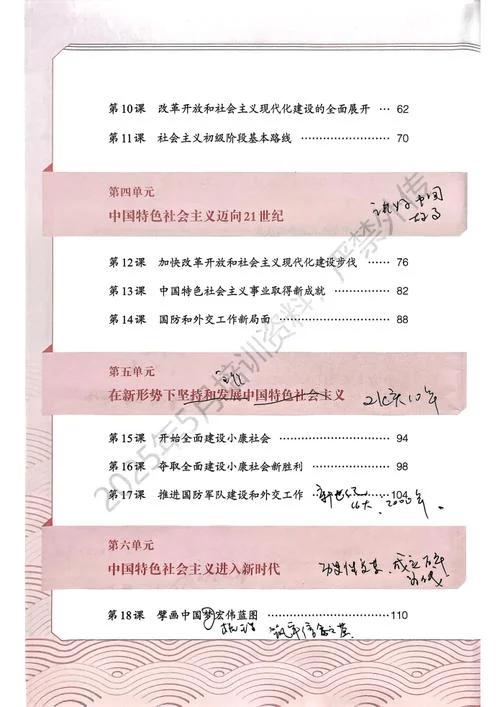 第10课 改革开放和社会主义现代化建设的全面展开 … 62
第11课 社会主义初级阶段基本路线 ……………… 70
第四单元
中国特色社会主义迈向21世纪
讲好中国
故事
第12课 加快改革开放和社会主义现代化建设步伐 …… 76
第13课 中国特色社会主义事业取得新成就 ………… 82
第14课 国防和外交工作新局面 …………………… 88
第五单元
在新形势下坚持和发展中国特色社会主义
第15课 开始全面建设小康社会 …………………… 94
第16课 夺取全面建设小康社会新胜利 …………… 98
第17课 推进国防军队建设和外交工作 …………… 104
新世纪
第六单元
中国特色社会主义进入新时代
第18课 擘画中国梦宏伟蓝图 …………………… 110
2025年5月培训资料，严禁外传